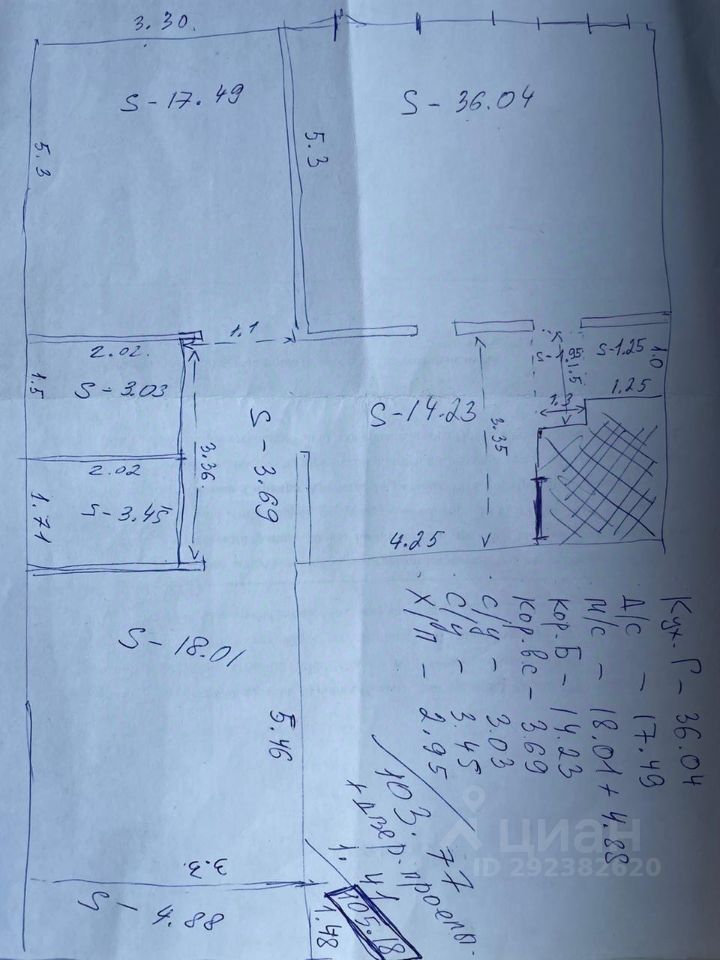 3.30.
S-17.49
S-36.04
5.3
5.3
1.1
2.02.
1.5
S-3.03
3.36
S-3.69
S-14.23
3.35
S-1.95
1.5
S-1.25
1.0
1.25
1.3
2.02
S-3.45
1.71
4.25
S-18.01
5.46
3.3
S-4.88
1.48
Кух. Г - 36.04
Д/С - 17.49
М/С - 18.01 + 4.88
Кор. Б - 14.23
Кор. вс - 3.69
С/У - 3.03
С/У - 3.45
Х/П - 2.95
103.77
+ двер. проемы.
1.41
105.18
циан
ID 292382620